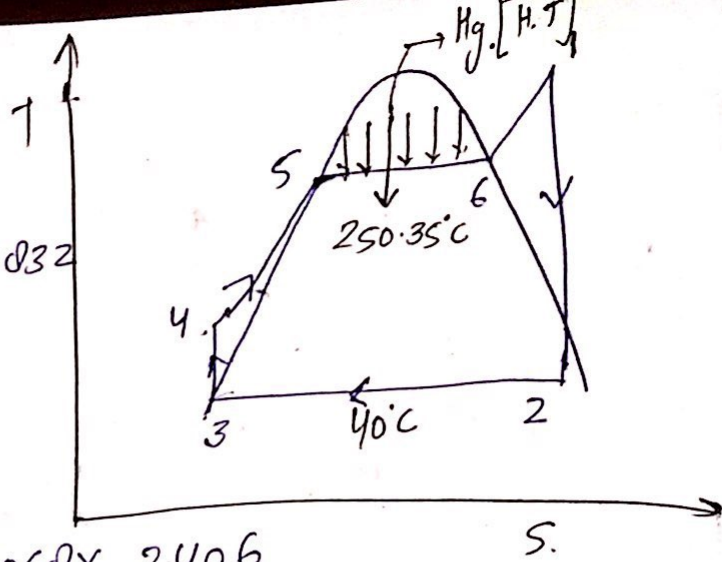 Hg. [H.T]
1
T
5
6
250.35°C
832
4
3
40°C
2
S.
2406